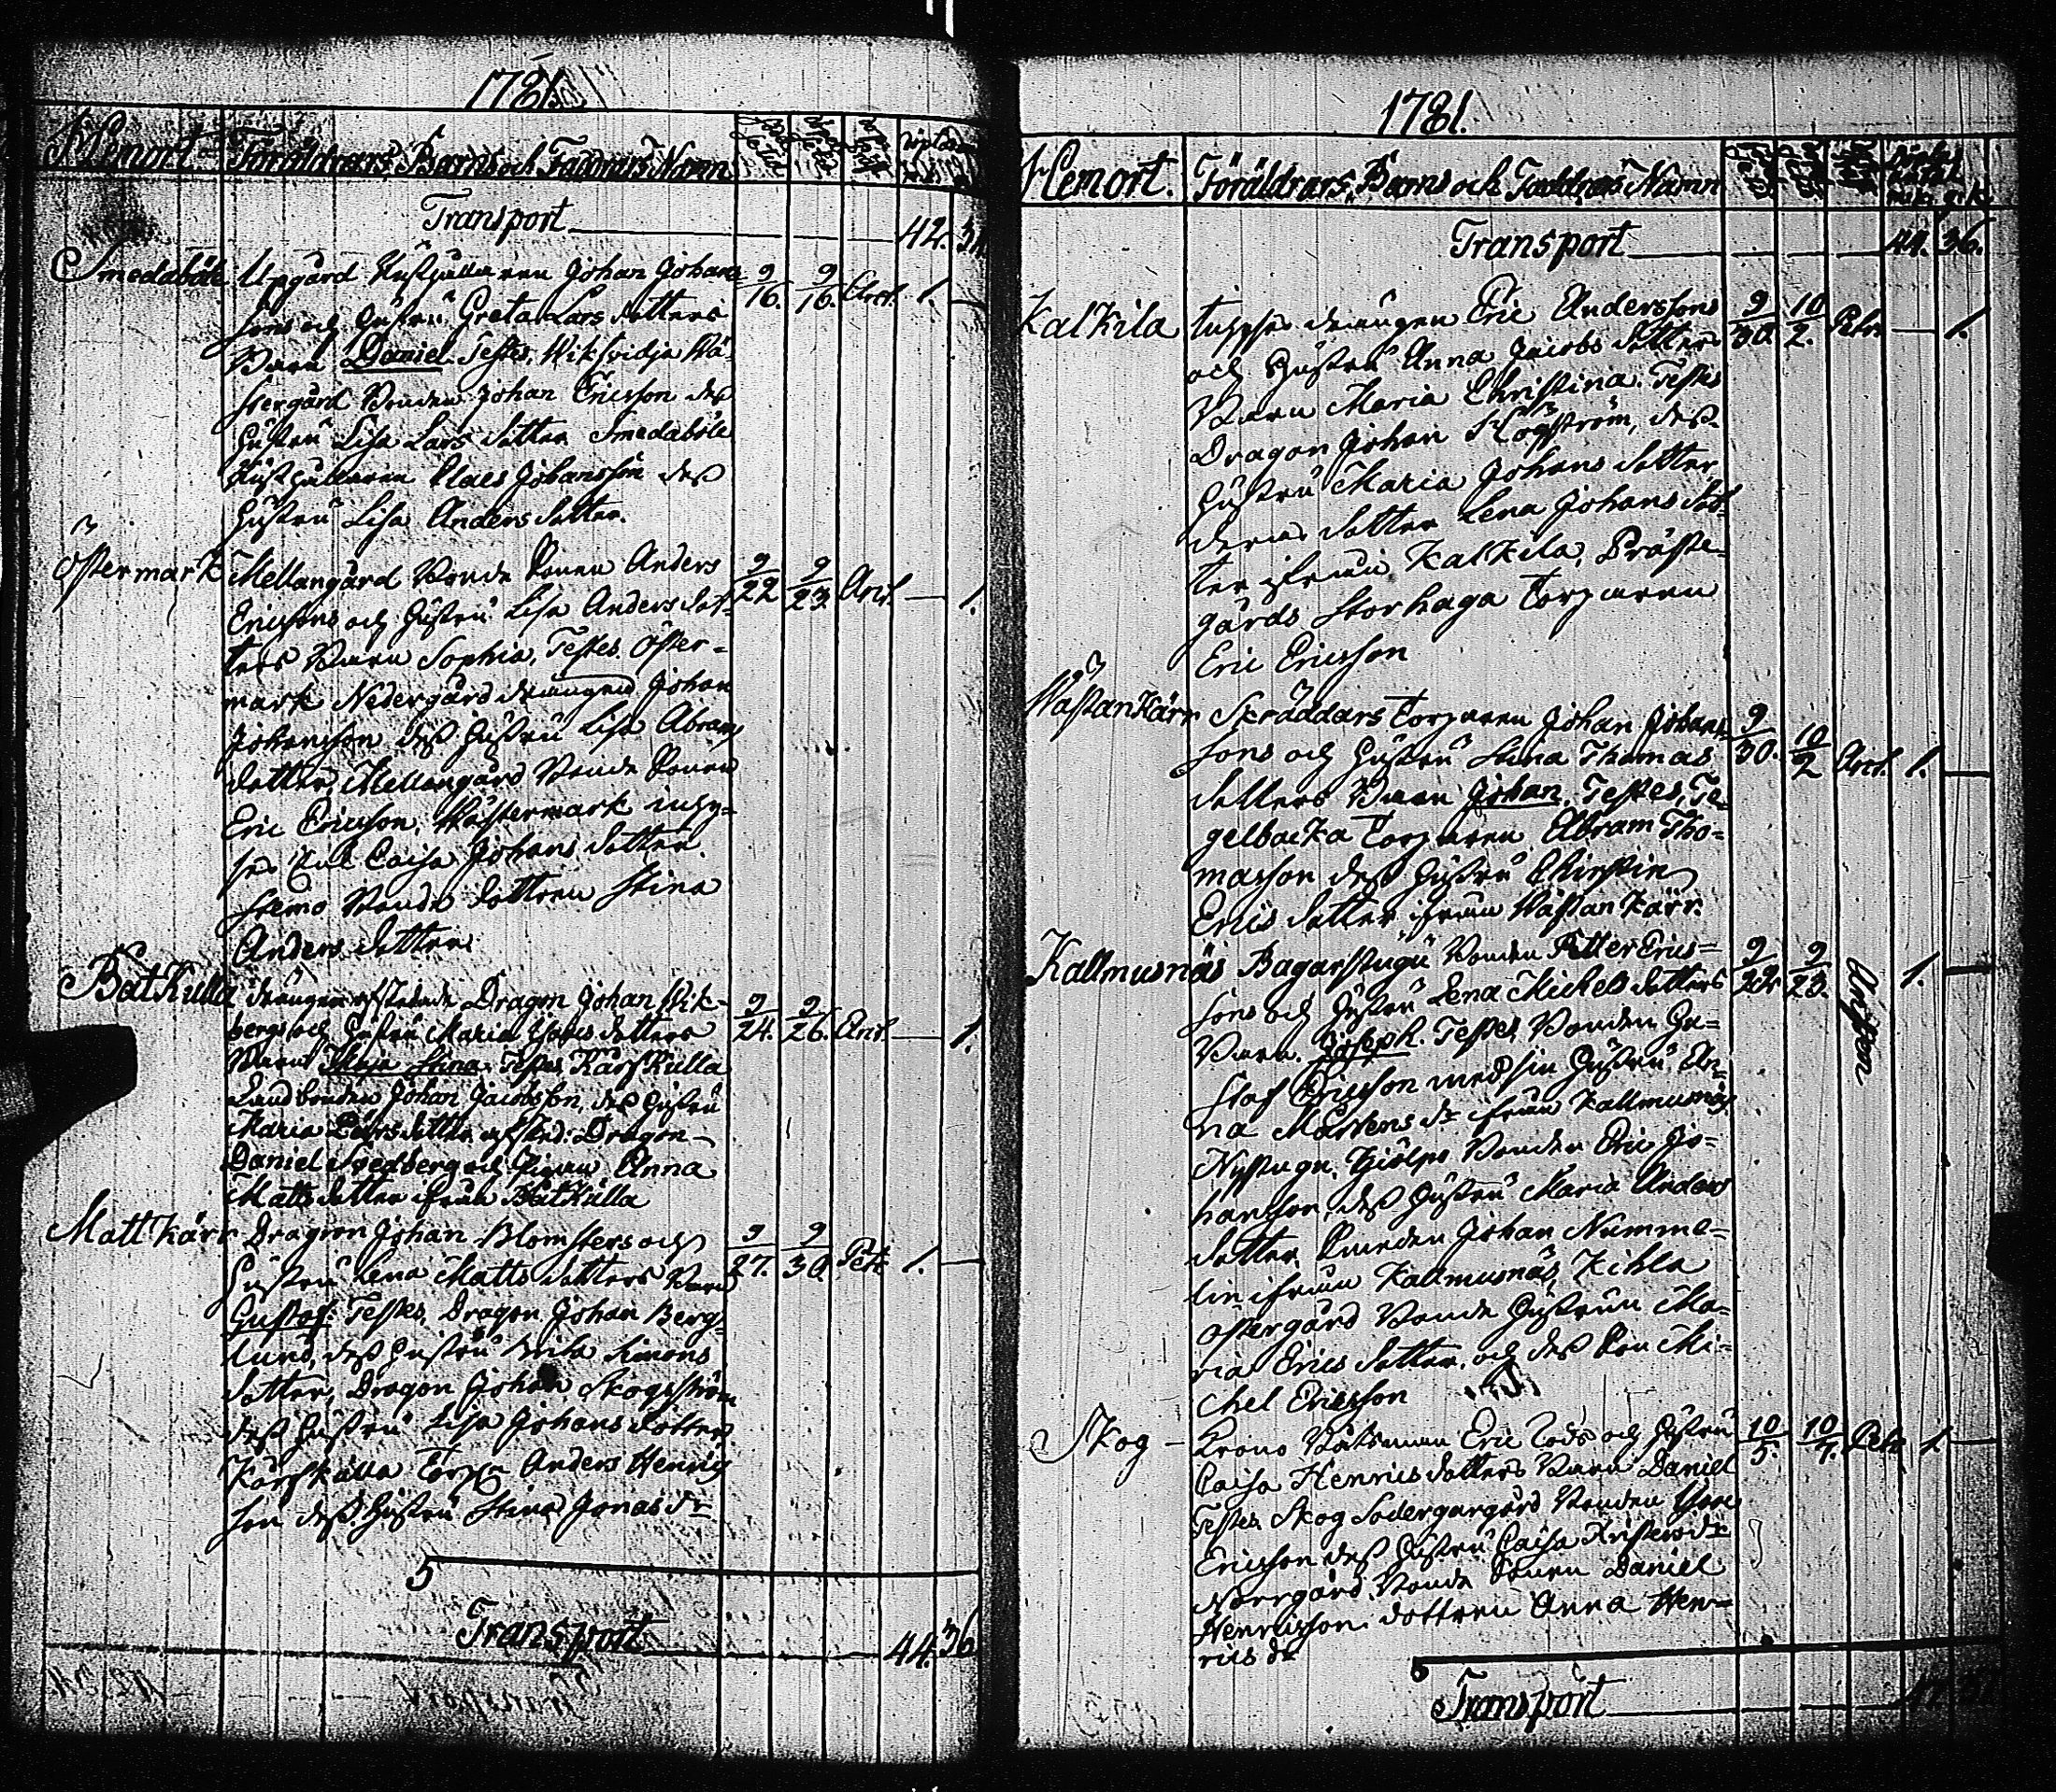 1781.
Hemort Föräldrars, Barns och Faddrars Namn
Transport 42. 34
Smedaböle Uppgård Hushållaren Johan Johans- 9/16. 9/16. Arct. 1. —
sons och hustru Greta Lars dotters
Barn Daniel. Testes, Wiksvidja Wä-
stergård Bonden Johan Ericsson dess
hustru Lisa Lars dotter Smedaböle
Hushållaren Claes Johansson dess
hustru Lisa Anders dotter.
Östermark Mellangård Bonde Sonen Anders 9/22 9/23. Arct. — 1.
Ericssons och hustru Lisa Anders dot-
ters Barn Sophia, Testes. Öster-
mark Nedergård drängen Johan
Johansson dess hustru Lisa Abrams
dotter, Mellangård Bonde Sonen
Eric Ericsson, Wästermark inhy-
ses Caisa Johans dotter.
Bonde dottren Stina
Anders dotter.
Båtkulla afskedade Dragon Johan Wik- 9/24. 9/26. Arct. — 1.
bergs och hustru Maria dotters
Barn Maja Stina. Testes Kärfkulla
Landbonden Johan Jacobsson, dess hustru
Maria Lars dotter afsked: Dragon
Daniel Svedberg och Anna
Matts dotter ifrån Båtkulla
Mattkärr Dragon Johan Blomsters och 9/27. 9/30. Petr. 1. —
hustru Lena Matts dotters Barn
Gustaf. Testes, Dragon Johan Berg-
lund, dess hustru Simons
dotter, Dragon Johan Skogsström
dess hustru Lisa Johans dotter,
Kärfkulla Anders Henrics
son dess hustru Stina Jonas dr
5
Transport 44. 36
1781.
Hemort. Föräldrars, Barns och Faddrars Namn
Transport 44. 36.
Kalkila inhyses drängen Eric Anderssons 9/30. 10/2. Petr. — 1.
och hustru Anna Jacobs dotters
Barn Maria Christina. Testes
Dragon Johan Skogström, dess
hustru Maria Johans dotter
deras dotter Lena Johans dot-
ter ifrån Kalkila, Präste-
gårds Storhaga Torparen
Eric Ericsson
Wästankärr Skräddars Torparen Johan Johans- 9/30. 10/2 Arct. 1. —
sons och hustru Stina Thomas
dotters Barn Johan. Testes, Te-
gelbacka Torparen Abram Tho-
masson dess hustru Christin
Erics dotter ifrån Wästankärr.
Kallmusnäs Bagarstugu Bonden Petter Erics- 9/22 9/23. 1. —
sons och hustru Lena Michels dotters
Barn. Joseph. Testes, Bonden Gu-
staf Ericsson med sin hustru An-
na Mårtens dr ifrån Kallmusnäs
Nystugu. Bonden Eric Jo-
hansson, dess hustru Maria Anders
dotter. Johan Numme-
lin ifrån Kallmusnäs, Kihla
Östergård Bonde hustrun Ma-
ria Erics dotter, och dess Son Mi-
chel Ericsson
Skog — Krono Båtsman Eric och hustru 10/5. 10/7. Petr. 1 —
Caisa Henrics dotters Barn Daniel
Testes Skog Södergårgård Bonden
Ericsson dess hustru Caisa dr
Norrgård Bonde Sonen Daniel
Henricsson dottren Anna Hen-
rics dr
Transport